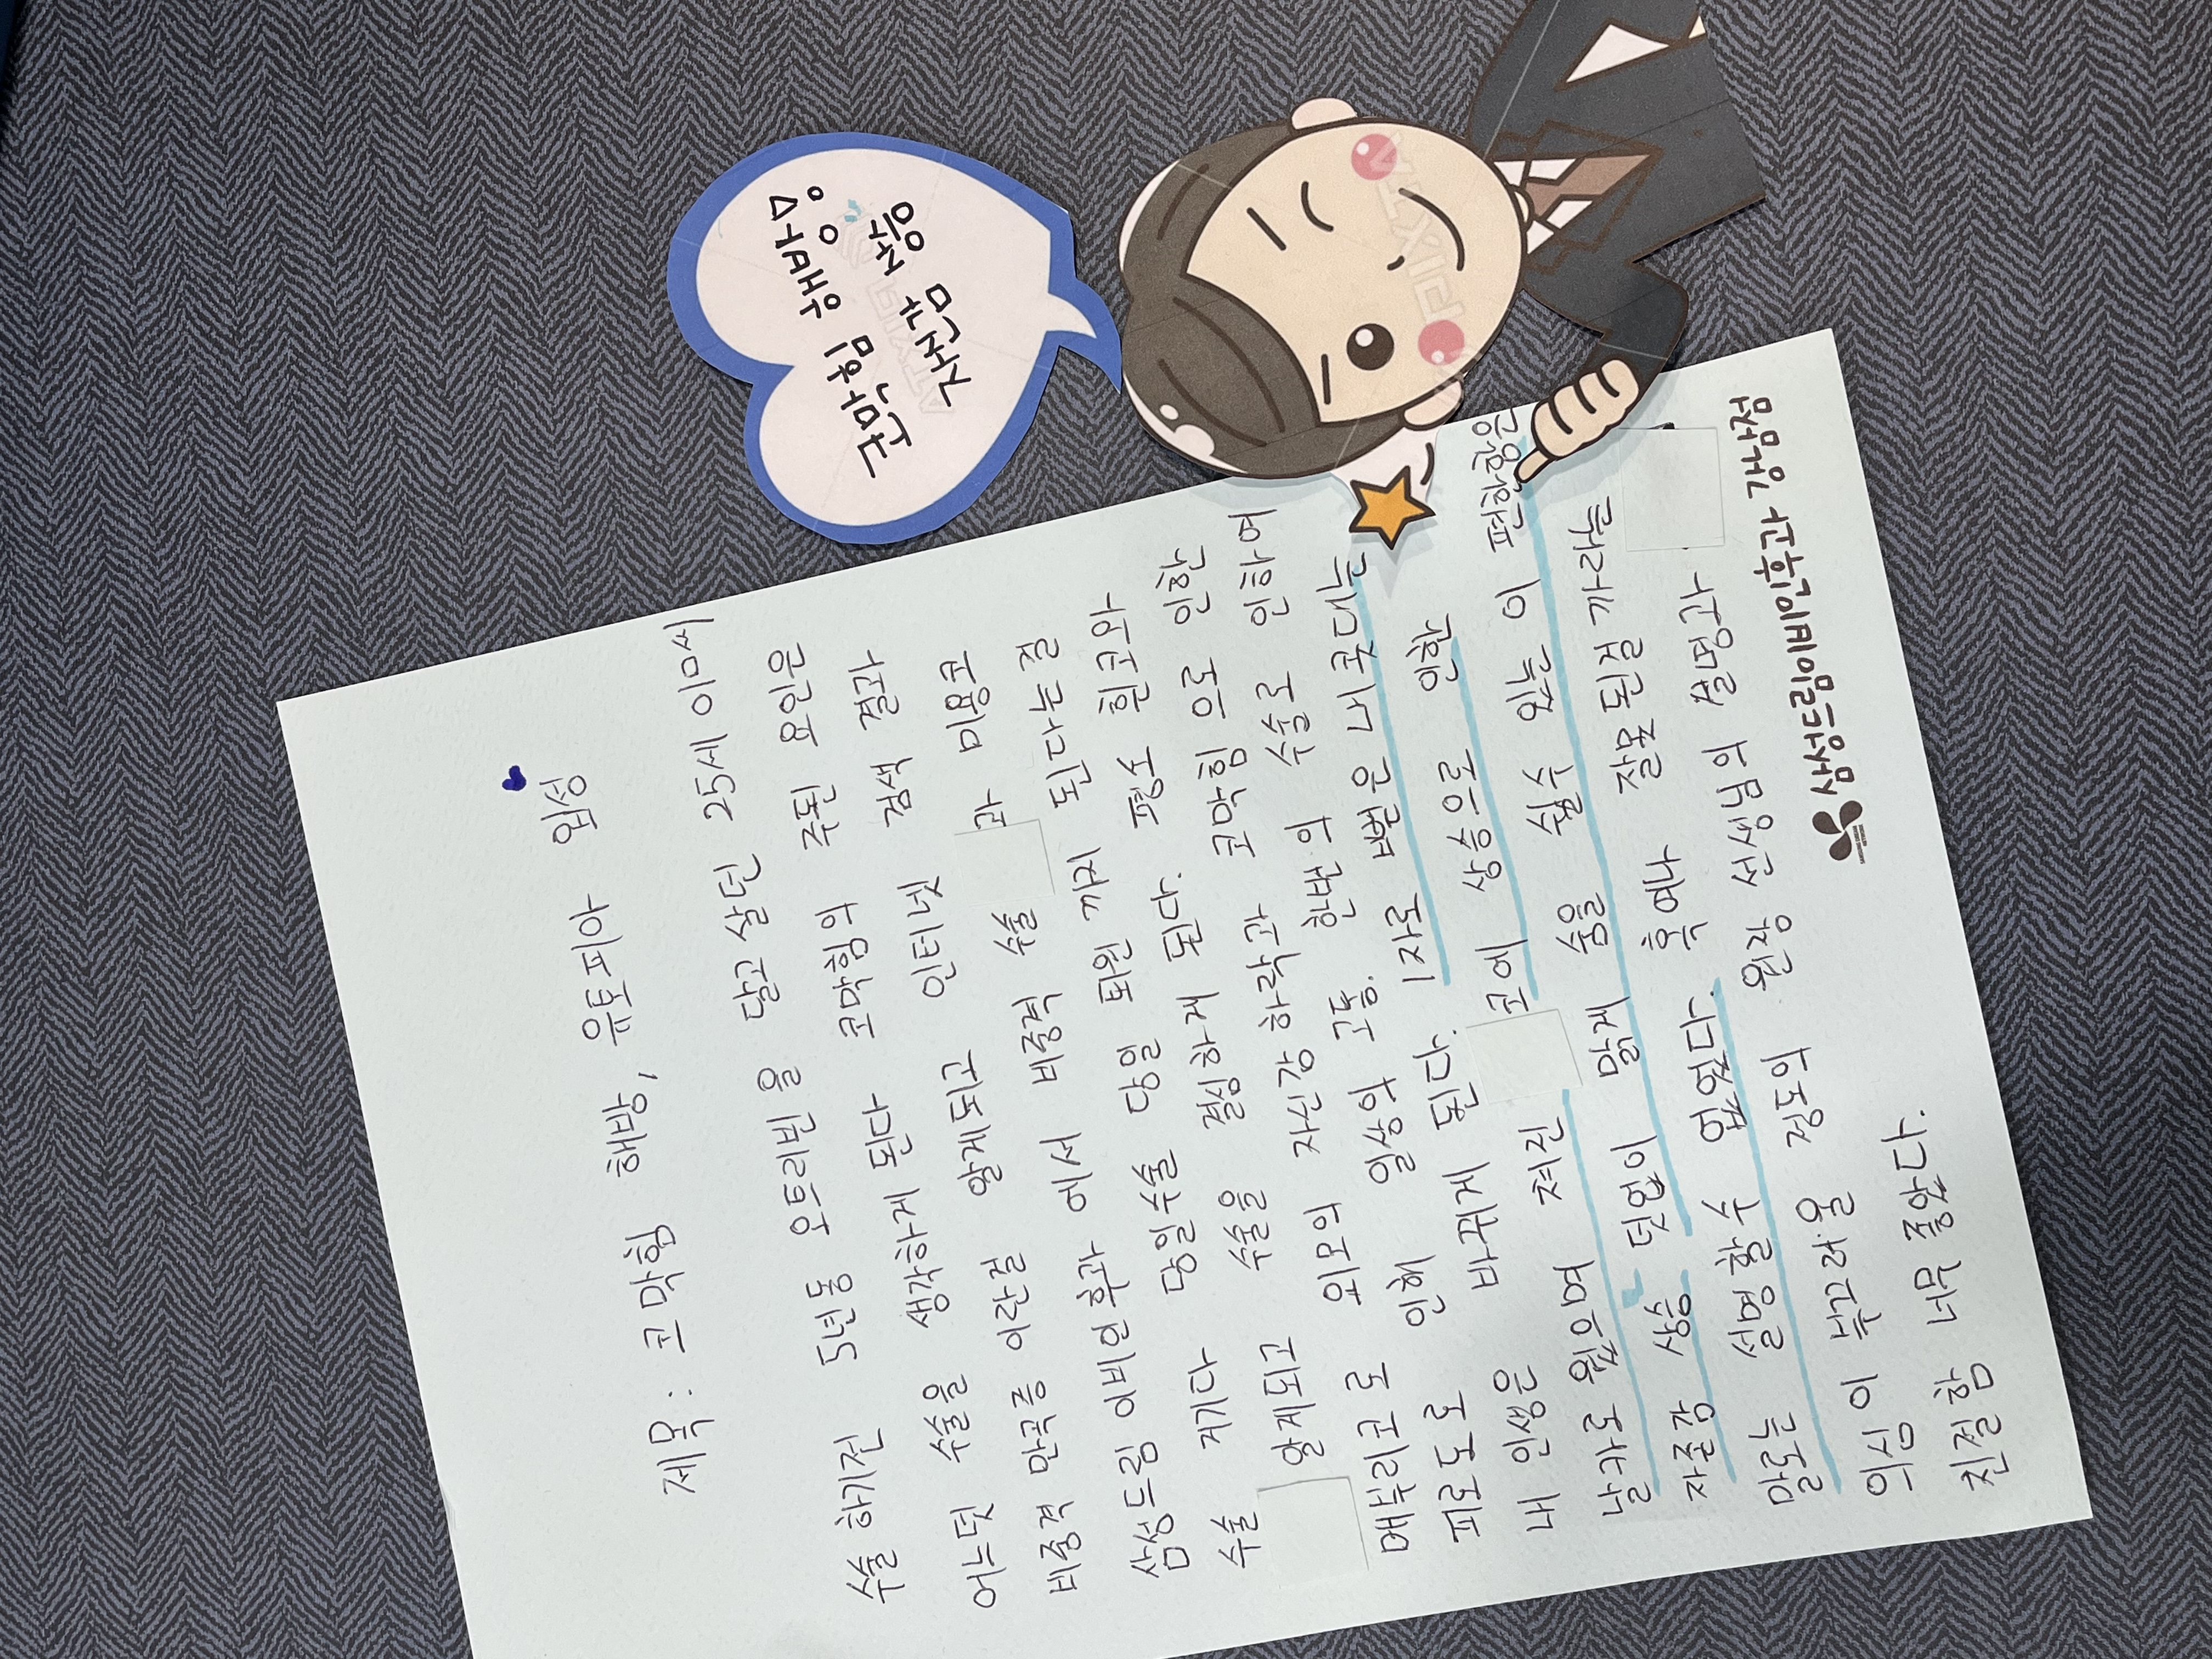 제목: 코막힘 해방, 유토피아 입성
수술 하기전 5년동 오트리빈을 달고 살던 25세 이ㅁ씨
어느덧 수술을 생각하게 된다 코막힘의 주된 요인은
비중격 만곡증 이란걸 알게되고 인터넷 검색 결과
삼성드림 이비인후과 에서 비중격 수술 과 미용코
수술 거기다 당일수술 당일 퇴원 까지 된다는걸
알게되고 수술을 결심하게 된다. 평소 휜코와
매부리코로 외모의 자신감 하락과 코막힘 으로 인한
피로도로 인해 일상의 고통. 한번의 수술로 인하여
내 인생은 바뀌게 된다. 1자로 뻗은 내 콧대는
날카로웠으며 쳐진 코에 상승으로 인한
자존감 상승 덧없이 맑게 숨을 쉴수 있는 이 편한함은
말로는 설명할수 없었다. 혹여나 잘못된걸 까라는
의심이 부끄러울 정도의 원장 선생님의 설명과
친절함 너무 좋았다.
삼성드림이비인후과 강남점
SAMSUNG DREAM
NETWORK
코막힘 해방
자신감 상승
PIXTA